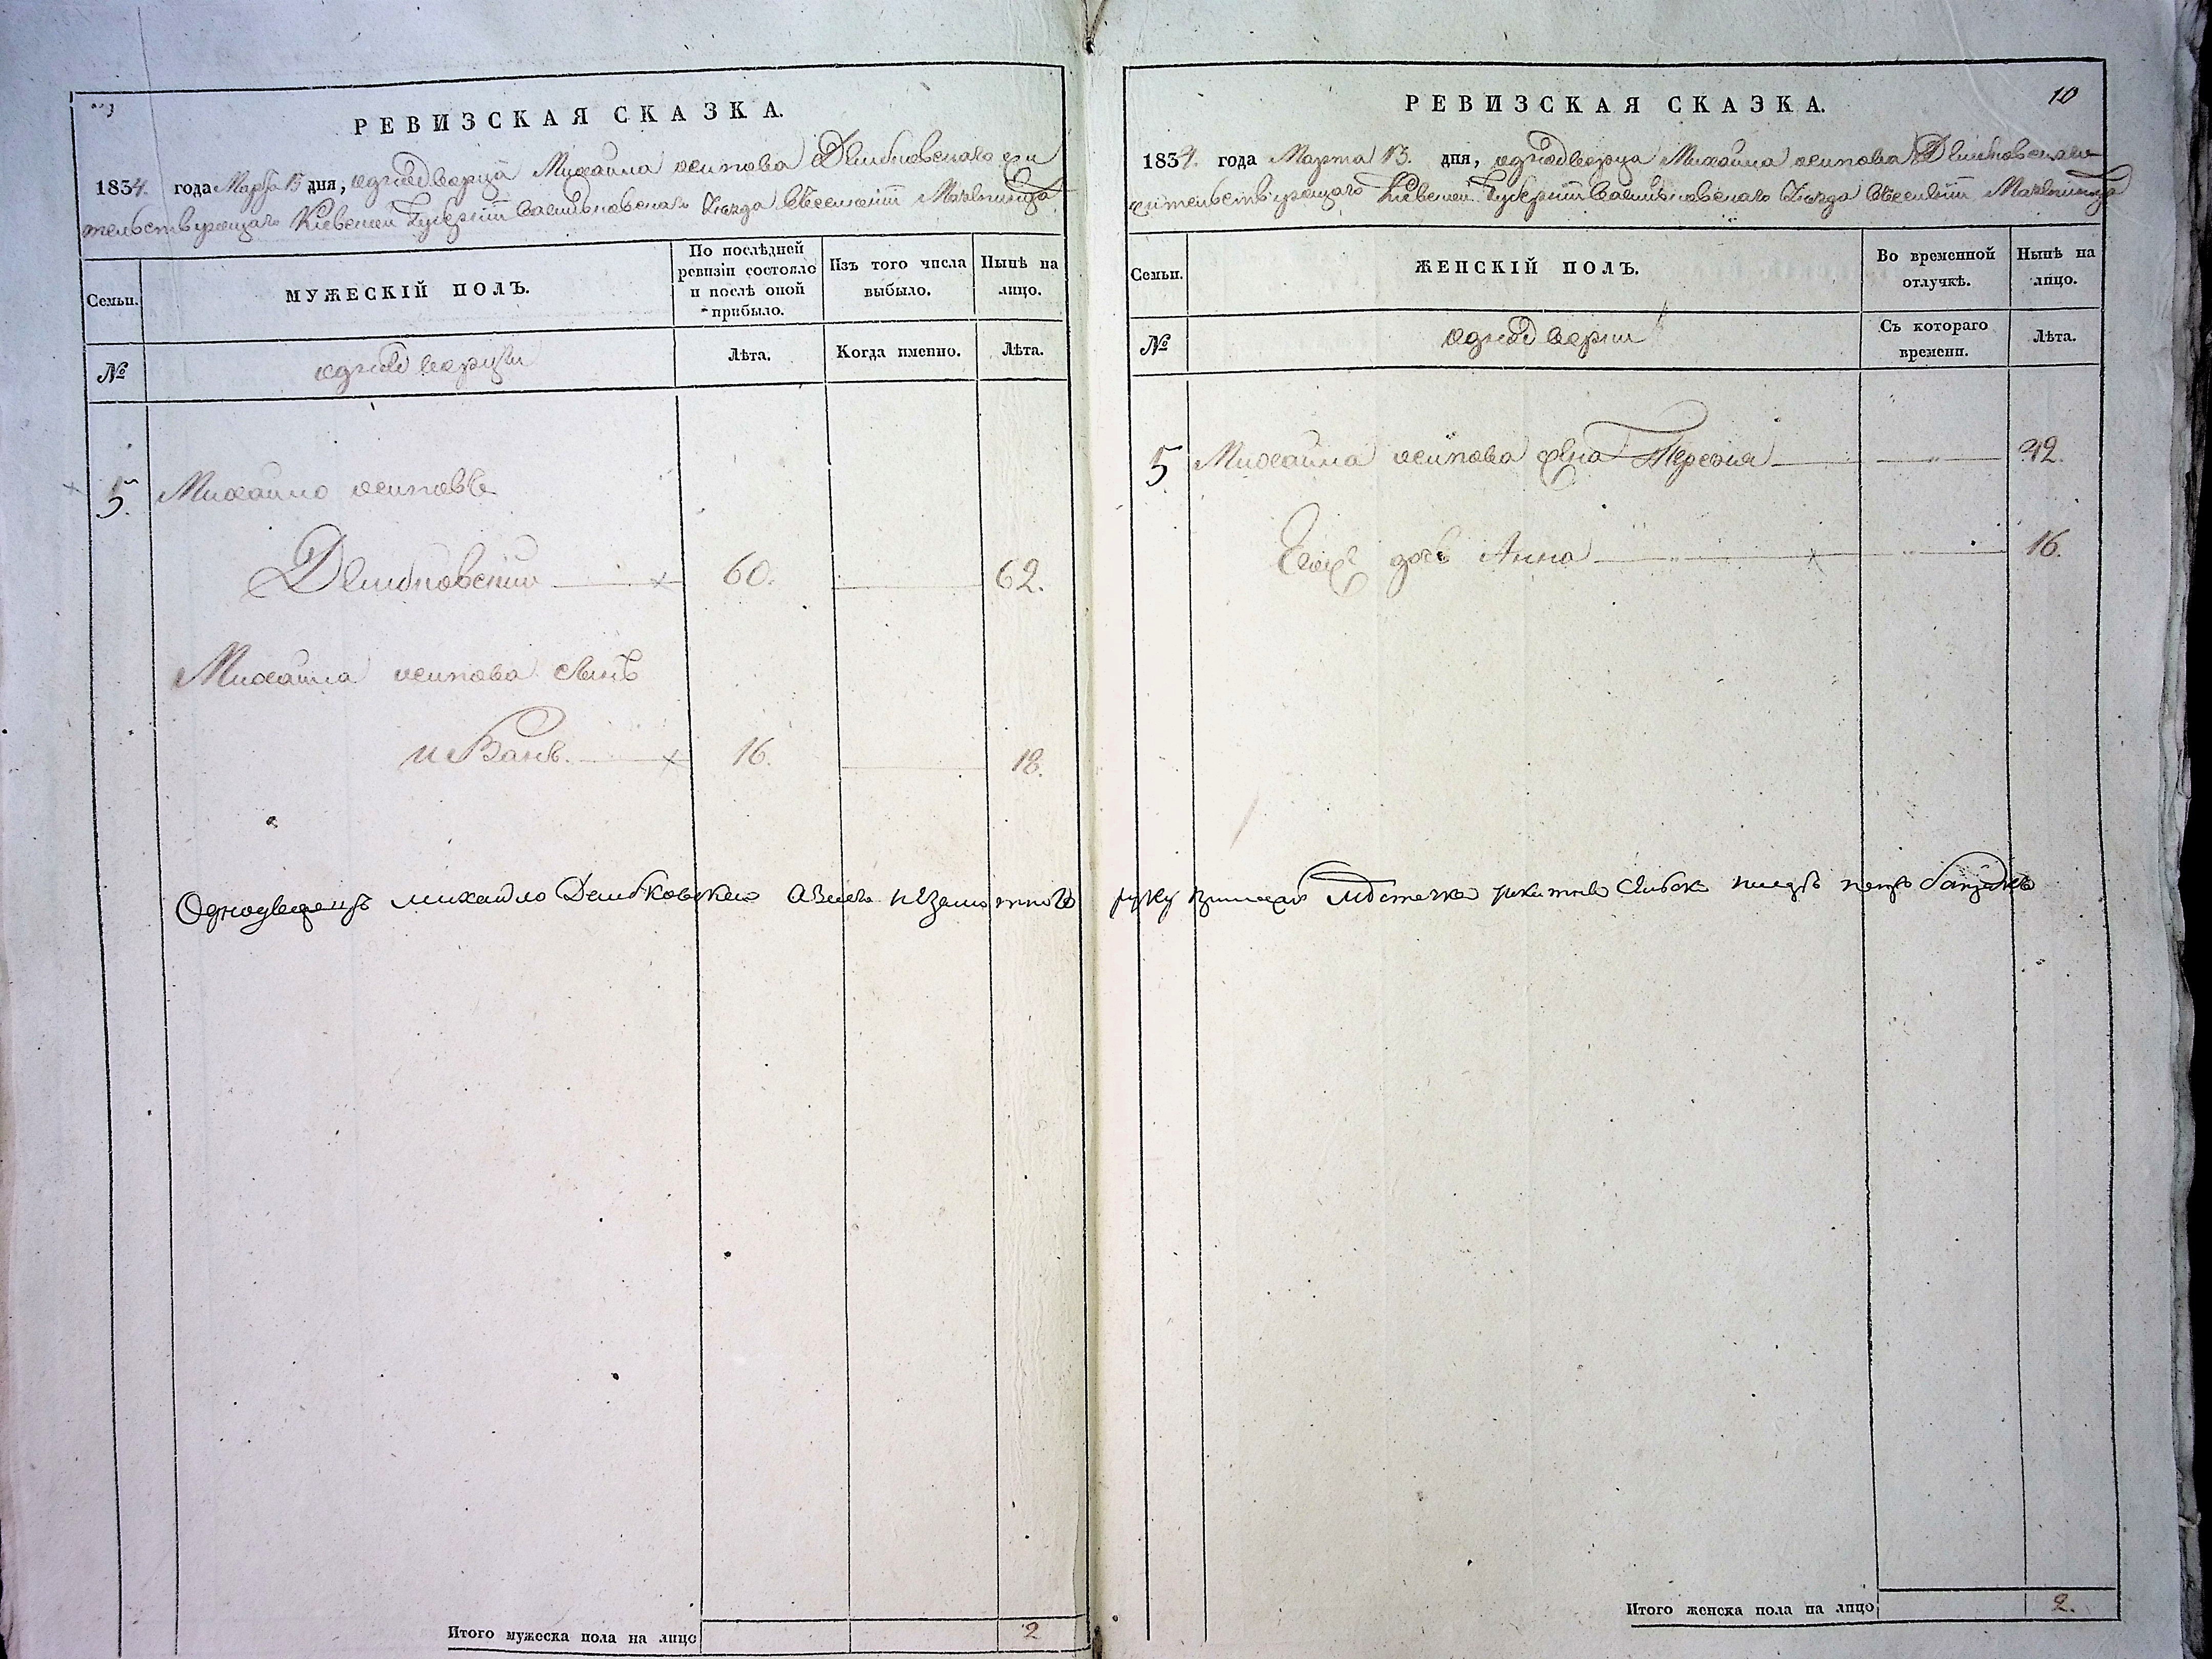 РЕВИЗСКАЯ СКАЗКА.
1834. года Марта 13 дня, однодворца Михаила осипова Дембковскаго жи
тельствующаго Киевской Губернии Васильковскаго Уезда
Семьи.
МУЖЕСКІЙ ПОЛЪ.
По послѣдней ревизіи состояло и послѣ оной прибыло.
Изъ того числа выбыло.
Нынѣ на лицо.
№
однодворцы
Лѣта.
Когда именно.
Лѣта.
5. Михаило осиповъ
Дембковский 60. 62.
Михаила осипова сынъ
иванъ. 16. 18.
Однодворецъ михайло Дембковский
Итого мужеска пола на лицо 2
10
РЕВИЗСКАЯ СКАЗКА.
1834. года Марта 13. дня, однодворца Михаила осипова Дембковскаго
жительствующаго Киевской Губернии Васильковскаго Уезда
Семьи.
ЖЕНСКІЙ ПОЛЪ.
Во временной отлучкѣ.
Нынѣ на лицо.
№
Съ котораго времени.
Лѣта.
5 Михаила осипова жена Терезия 42.
Его дочь Анна 16.
руку
Итого женска пола на лицо 2.